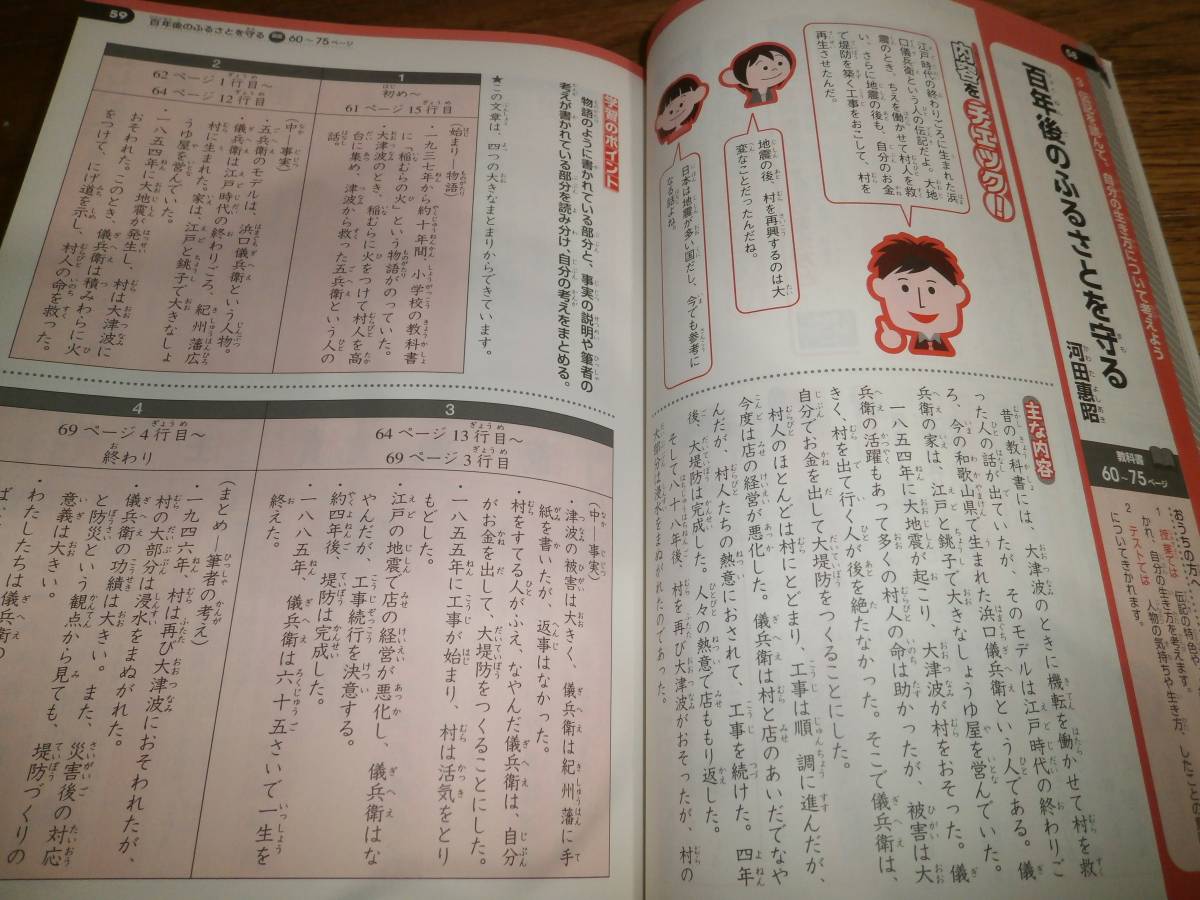 3 伝記を読んで、自分の生き方について考えよう
百年後のふるさとを守る
河田惠昭
教科書
60～75ページ
おうちの方へ
1 授業では 伝記の特色や
か、自分の生き方を考えます。
2 テストては 人物の気持ちや生き方、したことの
についてきかれます。
内容をチェック!!
江戸時代の終わりごろに生まれた浜
口儀兵衛という人の伝記だよ。大地
震のとき、ちえを働かせて村人を救
い、さらに地震の後も、自分のお金
で堤防を築く工事をおこして、村を
再生させたんだ。
地震の後、村を再興するのは大
変なことだったんだね。
日本は地震が多い国だし、今でも参考に
なる話よね。
主な内容
昔の教科書には、大津波のときに機転を働かせて村を救
った人の話が出ていたが、そのモデルは江戸時代の終わりご
ろ、今の和歌山県で生まれた浜口儀兵衛という人である。儀
兵衛の家は、江戸と銚子で大きなしょうゆ屋を営んでいた。
一八五四年に大地震が起こり、大津波が村をおそった。儀
兵衛の活躍もあって多くの村人の命は助かったが、被害は大
きく、村を出て行く人が後を絶たなかった。そこで儀兵衛は、
自分でお金を出して大堤防をつくることにした。
村人のほとんどは村にとどまり、工事は順調に進んだが、
今度は店の経営が悪化した。儀兵衛は村と店のあいだでなや
んだが、村人たちの熱意におされて、工事を続けた。四年
後、大堤防は完成した。人々の熱意で店ももり返した。
そして八十八年後、村を再び大津波がおそったが、村の
大部分は浸水をまぬがれたのであった。
59
百年後のふるさとを守る 60～75ページ
学習のポイント
物語のように書かれている部分と、事実の説明や筆者の
考えが書かれている部分を読み分け、自分の考えをまとめる。
★この文章は、四つの大きなまとまりからできています。
1
初め～
61ページ15行目
(始まり―物語)
・一九三七年から約十年間、小学校の教科書
に「稲むらの火」という物語がのっていた。
・大津波のとき、稲むらに火をつけて村人を高
台に集め、津波から救った五兵衛という人の
話。
2
62ページ1行目～
64ページ12行目
(中―事実)
・五兵衛のモデルは、浜口儀兵衛という人物。
・儀兵衛は江戸時代の終わりごろ、紀州藩広
村に生まれた。家は、江戸と銚子で大きなしょ
うゆ屋を営んでいた。
・一八五四年に大地震が発生し、村は大津波に
おそわれた。このとき、儀兵衛は積みわらに火
をつけて、にげ道を示し、村人の命を救った。
3
64ページ13行目～
69ページ3行目
(中―事実)
・津波の被害は大きく、儀兵衛は紀州藩に手
紙を書いたが、返事はなかった。
・村をすてる人がふえ、なやんだ儀兵衛は、自分
がお金を出して、大堤防をつくることにした。
・一八五五年に工事が始まり、村は活気をとり
もどした。
・江戸の地震で店の経営が悪化し、儀兵衛はな
やんだが、工事続行を決意する。
・約四年後、堤防は完成した。
・一八八五年、儀兵衛は六十五さいで一生を
終えた。
4
69ページ4行目～
終わり
(まとめ―筆者の考え)
・一九四六年、村は再び大津波におそわれたが、
村の大部分は浸水をまぬがれた。
・儀兵衛の功績は大きい。また、災害後の対応
と防災という観点から見ても、堤防づくりの
意義は大きい。
・わたしたちは儀兵衛の